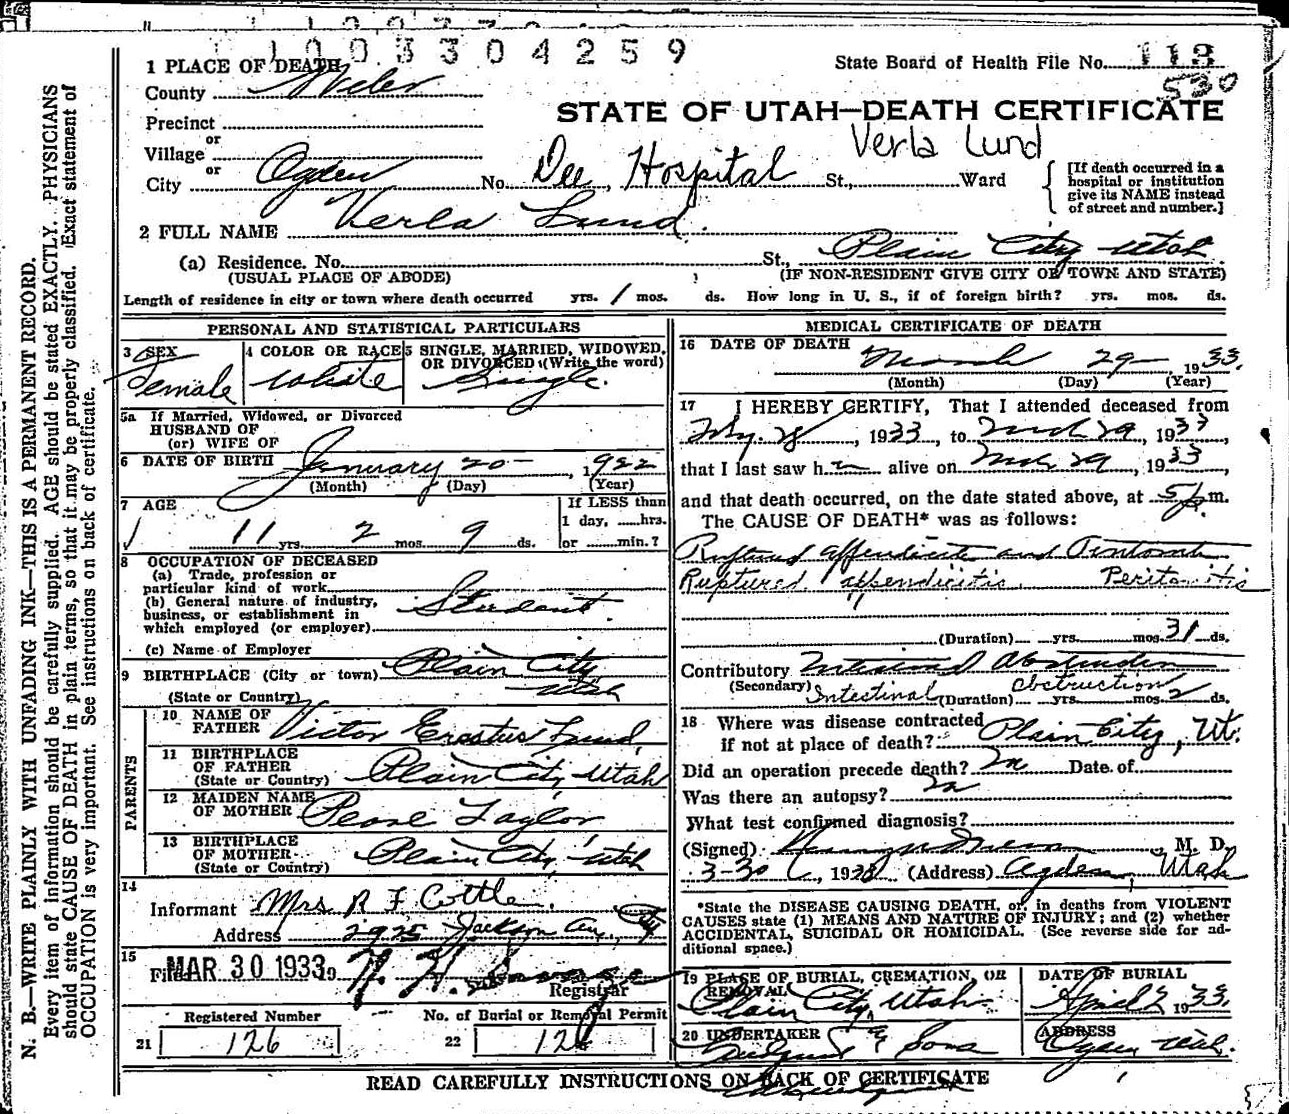 1003304259
1 PLACE OF DEATH
State Board of Health File No. 113
County Weber
530
STATE OF UTAH—DEATH CERTIFICATE
Precinct
or
Village
Verla Lund
or
City Ogden No. Dee Hospital St., Ward
[If death occurred in a hospital or institution give its NAME instead of street and number.]
2 FULL NAME Verla Lund.
(a) Residence. No. St., Plain City Utah
(USUAL PLACE OF ABODE) (IF NON-RESIDENT GIVE CITY OR TOWN AND STATE)
Length of residence in city or town where death occurred yrs. 1 mos. ds. How long in U. S., if of foreign birth? yrs. mos. ds.
PERSONAL AND STATISTICAL PARTICULARS
3 SEX
Female
4 COLOR OR RACE
White
5 SINGLE, MARRIED, WIDOWED, OR DIVORCED (Write the word)
Single.
5a If Married, Widowed, or Divorced
HUSBAND OF
(or) WIFE OF
6 DATE OF BIRTH January 20 , 1922
(Month) (Day) (Year)
7 AGE
11 yrs. 2 mos. 9 ds.
If LESS than
1 day, hrs.
or min.?
8 OCCUPATION OF DECEASED
(a) Trade, profession or
particular kind of work
(b) General nature of industry,
business, or establishment in
which employed (or employer)
Student
(c) Name of Employer
9 BIRTHPLACE (City or town) Plain City
(State or Country) Utah
PARENTS
10 NAME OF FATHER Victor Erastus Lund,
11 BIRTHPLACE OF FATHER (State or Country) Plain City, Utah
12 MAIDEN NAME OF MOTHER Pearl Taylor
13 BIRTHPLACE OF MOTHER (State or Country) Plain City, Utah
14
Informant Mrs R F Cottle.
Address 2925 Jackson Av., City
15
Fi MAR 30 1933 9
Registrar
Registered Number No. of Burial or Removal Permit
21 126 22 126
MEDICAL CERTIFICATE OF DEATH
16 DATE OF DEATH
March 29 1933.
(Month) (Day) (Year)
17 I HEREBY CERTIFY, That I attended deceased from
28 , 1933 , to March 29, 1933,
that I last saw h alive on March 29, 1933,
and that death occurred, on the date stated above, at 5 p m.
The CAUSE OF DEATH* was as follows:
Ruptured appendicitis and Peritonitis
Ruptured appendicitis Peritonitis
(Duration) yrs. mos. 31 ds.
Contributory Intestinal Obstruction
(Secondary) Intestinal obstruction
(Duration) yrs. mos. 2 ds.
18 Where was disease contracted
if not at place of death? Plain City, Ut.
Did an operation precede death? no Date of
Was there an autopsy? no
What test confirmed diagnosis?
(Signed) M. D.
3-30 , 1933 (Address) Ogden, Utah
*State the DISEASE CAUSING DEATH, or, in deaths from VIOLENT
CAUSES state (1) MEANS AND NATURE OF INJURY; and (2) whether
ACCIDENTAL, SUICIDAL OR HOMICIDAL. (See reverse side for ad-
ditional space.)
19 PLACE OF BURIAL, CREMATION, OR REMOVAL
Plain City, Utah
DATE OF BURIAL
April 2 1933.
20 UNDERTAKER
& Sons
ADDRESS
Ogden Utah.
READ CAREFULLY INSTRUCTIONS ON BACK OF CERTIFICATE
N. B.—WRITE PLAINLY WITH UNFADING INK—THIS IS A PERMANENT RECORD.
Every item of information should be carefully supplied. AGE should be stated EXACTLY. PHYSICIANS
should state CAUSE OF DEATH in plain terms, so that it may be properly classified. Exact statement of
OCCUPATION is very important. See instructions on back of certificate.